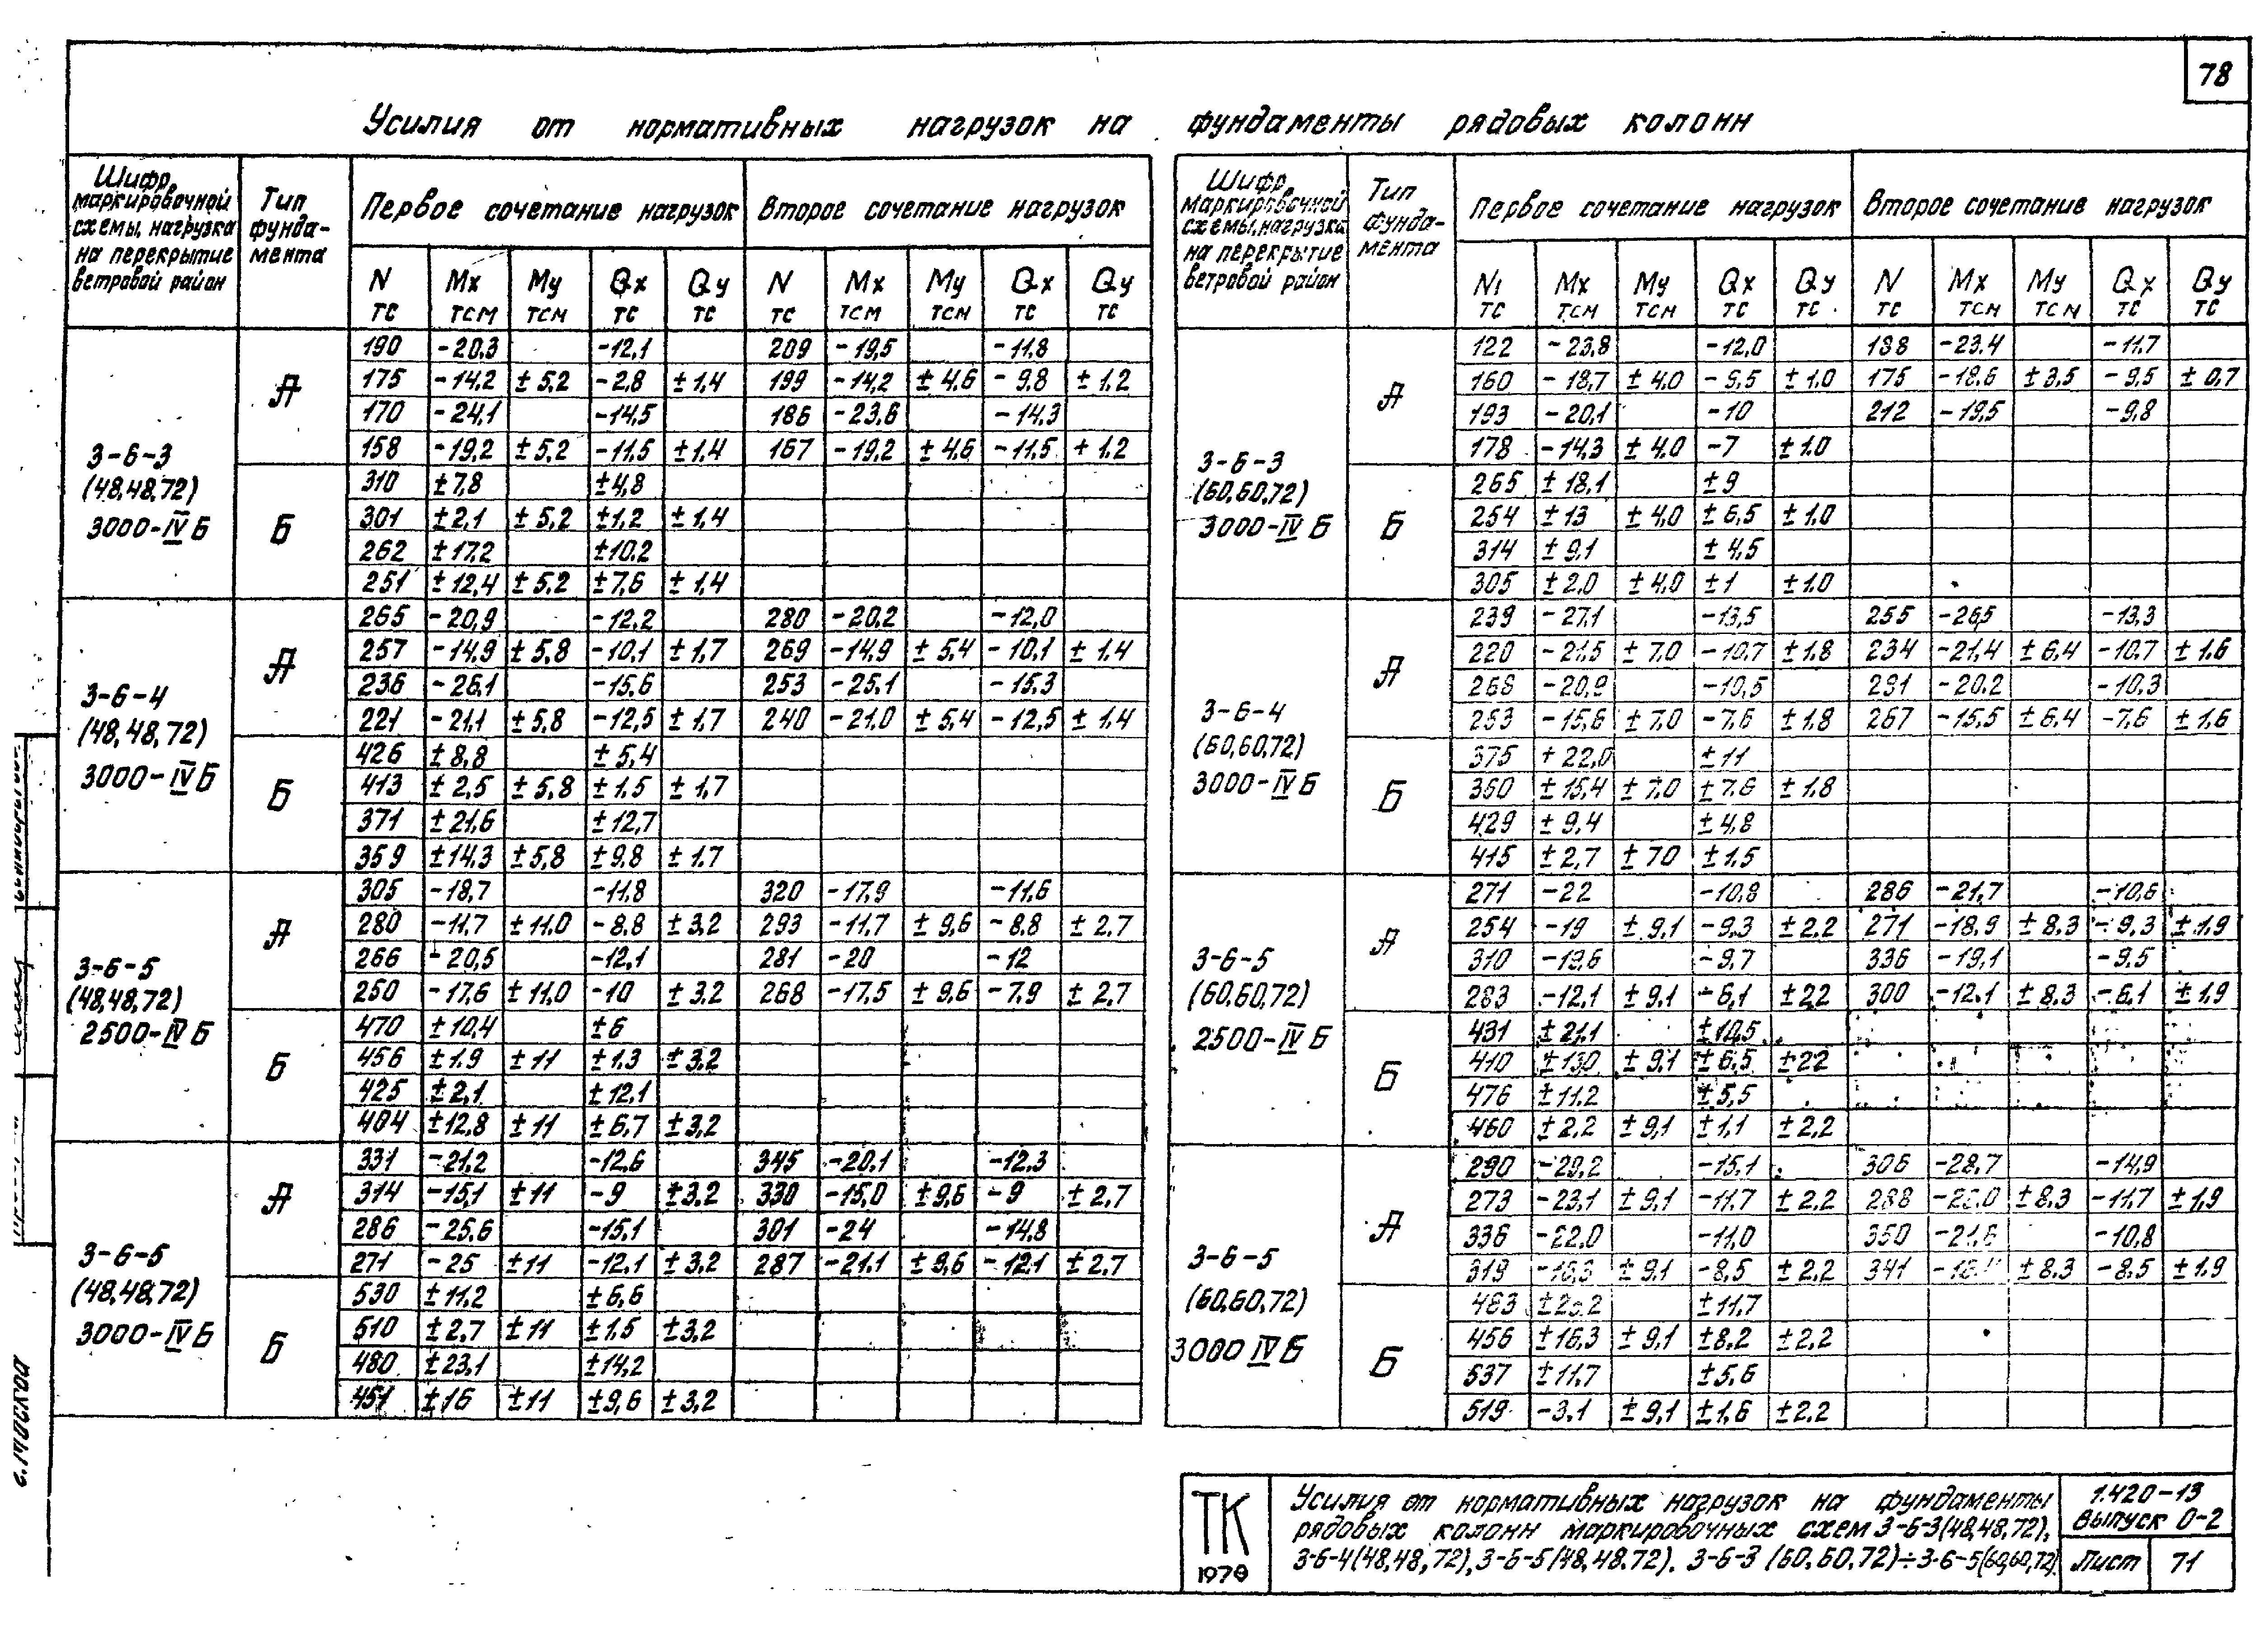 78
Усилия от нормативных нагрузок на фундаменты рядовых колонн
Шифр маркировочной схемы, нагрузка на перекрытие ветровой район
Тип фунда-мента
Первое сочетание нагрузок
Второе сочетание нагрузок
N тс Mx тсм My тсм Qx тс Qy тс N тс Mx тсм My тсм Qx тс Qy тс
3-6-3
(48,48,72)
3000-IV Б
А
190 -20,3 -12,1 209 -19,5 -11,8
175 -14,2 ±5,2 -2,8 ±1,4 199 -14,2 ±4,6 -9,8 ±1,2
170 -24,1 -14,5 186 -23,6 -14,3
158 -19,2 ±5,2 -11,5 ±1,4 167 -19,2 ±4,6 -11,5 +1,2
Б
310 ±7,8 ±4,8
301 ±2,1 ±5,2 ±1,2 ±1,4
262 ±17,2 ±10,2
251 ±12,4 ±5,2 ±7,6 ±1,4
3-6-4
(48,48,72)
3000-IV Б
А
265 -20,9 -12,2 280 -20,2 -12,0
257 -14,9 ±5,8 -10,1 ±1,7 269 -14,9 ±5,4 -10,1 ±1,4
236 -26,1 -15,6 253 -25,1 -15,3
221 -21,1 ±5,8 -12,5 ±1,7 240 -21,0 ±5,4 -12,5 ±1,4
Б
426 ±8,8 ±5,4
413 ±2,5 ±5,8 ±1,5 ±1,7
371 ±21,6 ±12,7
359 ±14,3 ±5,8 ±9,8 ±1,7
3-6-5
(48,48,72)
2500-IV Б
А
305 -18,7 -11,8 320 -17,9 -11,6
280 -11,7 ±11,0 -8,8 ±3,2 293 -11,7 ±9,6 -8,8 ±2,7
266 -20,5 -12,1 281 -20 -12
250 -17,6 ±11,0 -10 ±3,2 268 -17,5 ±9,6 -7,9 ±2,7
Б
470 ±10,4 ±6
456 ±1,9 ±11 ±1,3 ±3,2
425 ±2,1 ±12,1
404 ±12,8 ±11 ±6,7 ±3,2
3-6-5
(48,48,72)
3000-IV Б
А
331 -21,2 -12,6 345 -20,1 -12,3
314 -15,1 ±11 -9 ±3,2 330 -15,0 ±9,6 -9 ±2,7
286 -25,6 -15,1 301 -24 -14,8
271 -25 ±11 -12,1 ±3,2 287 -21,1 ±9,6 -12,1 ±2,7
Б
530 ±11,2 ±6,6
510 ±2,7 ±11 ±1,5 ±3,2
480 ±23,1 ±14,2
451 ±16 ±11 ±9,6 ±3,2
Шифр маркировочной схемы, нагрузка на перекрытие ветровой район
Тип фунда-мента
Первое сочетание нагрузок
Второе сочетание нагрузок
N тс Mx тсм My тсм Qx тс Qy тс N тс Mx тсм My тсм Qx тс Qy тс
3-6-3
(60,60,72)
3000-IV Б
А
122 -23,8 -12,0 188 -23,4 -11,7
160 -18,7 ±4,0 -9,5 ±1,0 175 -18,6 ±3,5 -9,5 ±0,7
193 -20,1 -10 212 -19,5 -9,8
178 -14,3 ±4,0 -7 ±1,0
Б
265 ±18,1 ±9
254 ±13 ±4,0 ±6,5 ±1,0
314 ±9,1 ±4,5
305 ±2,0 ±4,0 ±1 ±1,0
3-6-4
(60,60,72)
3000-IV Б
А
239 -27,1 -13,5 255 -26,5 -13,3
220 -21,5 ±7,0 -10,7 ±1,8 234 -21,4 ±6,4 -10,7 ±1,6
268 -20,9 -10,5 291 -20,2 -10,3
253 -15,6 ±7,0 -7,6 ±1,8 267 -15,5 ±6,4 -7,6 ±1,6
Б
375 +22,0 ±11
360 ±15,4 ±7,0 ±7,6 ±1,8
429 ±9,4 ±4,8
415 ±2,7 ±70 ±1,5
3-6-5
(60,60,72)
2500-IV Б
А
271 -22 -10,8 286 -21,7 -10,6
254 -19 ±9,1 -9,3 ±2,2 271 -18,9 ±8,3 -9,3 ±1,9
310 -19,6 -9,7 336 -19,1 -9,5
283 -12,1 ±9,1 -6,1 ±22 300 -12,1 ±8,3 -6,1 ±1,9
Б
431 ±21,1 ±10,5
410 ±130 ±9,1 ±6,5 ±22
476 ±11,2 ±5,5
460 ±2,2 ±9,1 ±1,1 ±2,2
3-6-5
(60,60,72)
3000 IV Б
А
290 -29,2 -15,1 306 -28,7 -14,9
273 -23,1 ±9,1 -11,7 ±2,2 288 ±8,3 -11,7 ±1,9
336 -22,0 -11,0 350 -21,6 -10,8
319 -16,3 ±9,1 -8,5 ±2,2 341 ±8,3 -8,5 ±1,9
Б
483 ±11,7
456 ±16,3 ±9,1 ±8,2 ±2,2
537 ±11,7 ±5,6
519 -3,1 ±9,1 ±1,6 ±2,2
ТК
1970
Усилия от нормативных нагрузок на фундаменты
рядовых колонн маркировочных схем 3-6-3(48,48,72),
3-6-4(48,48,72), 3-6-5(48,48,72). 3-6-3 (60,60,72)÷3-6-5(60,60,72)
1.420-13
Выпуск 0-2
Лист 71
г. Москва